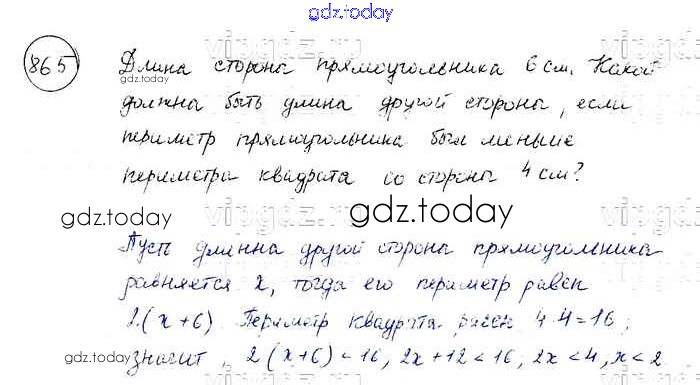 gdz.today
865 Длина стороны прямоугольника 6 см. Какой
gdz.today
должна быть длина другой стороны, если
периметр прямоугольника был меньше
периметра квадрата со стороны 4 см?
gdz.today
gdz.today
Пусть длинна другой стороны прямоугольника
равняется x, тогда его периметр равен
2·(x+6). Периметр квадрата равен 4·4=16;
gdz.today
значит, 2(x+6)<16, 2x+12<16, 2x<4, x<2